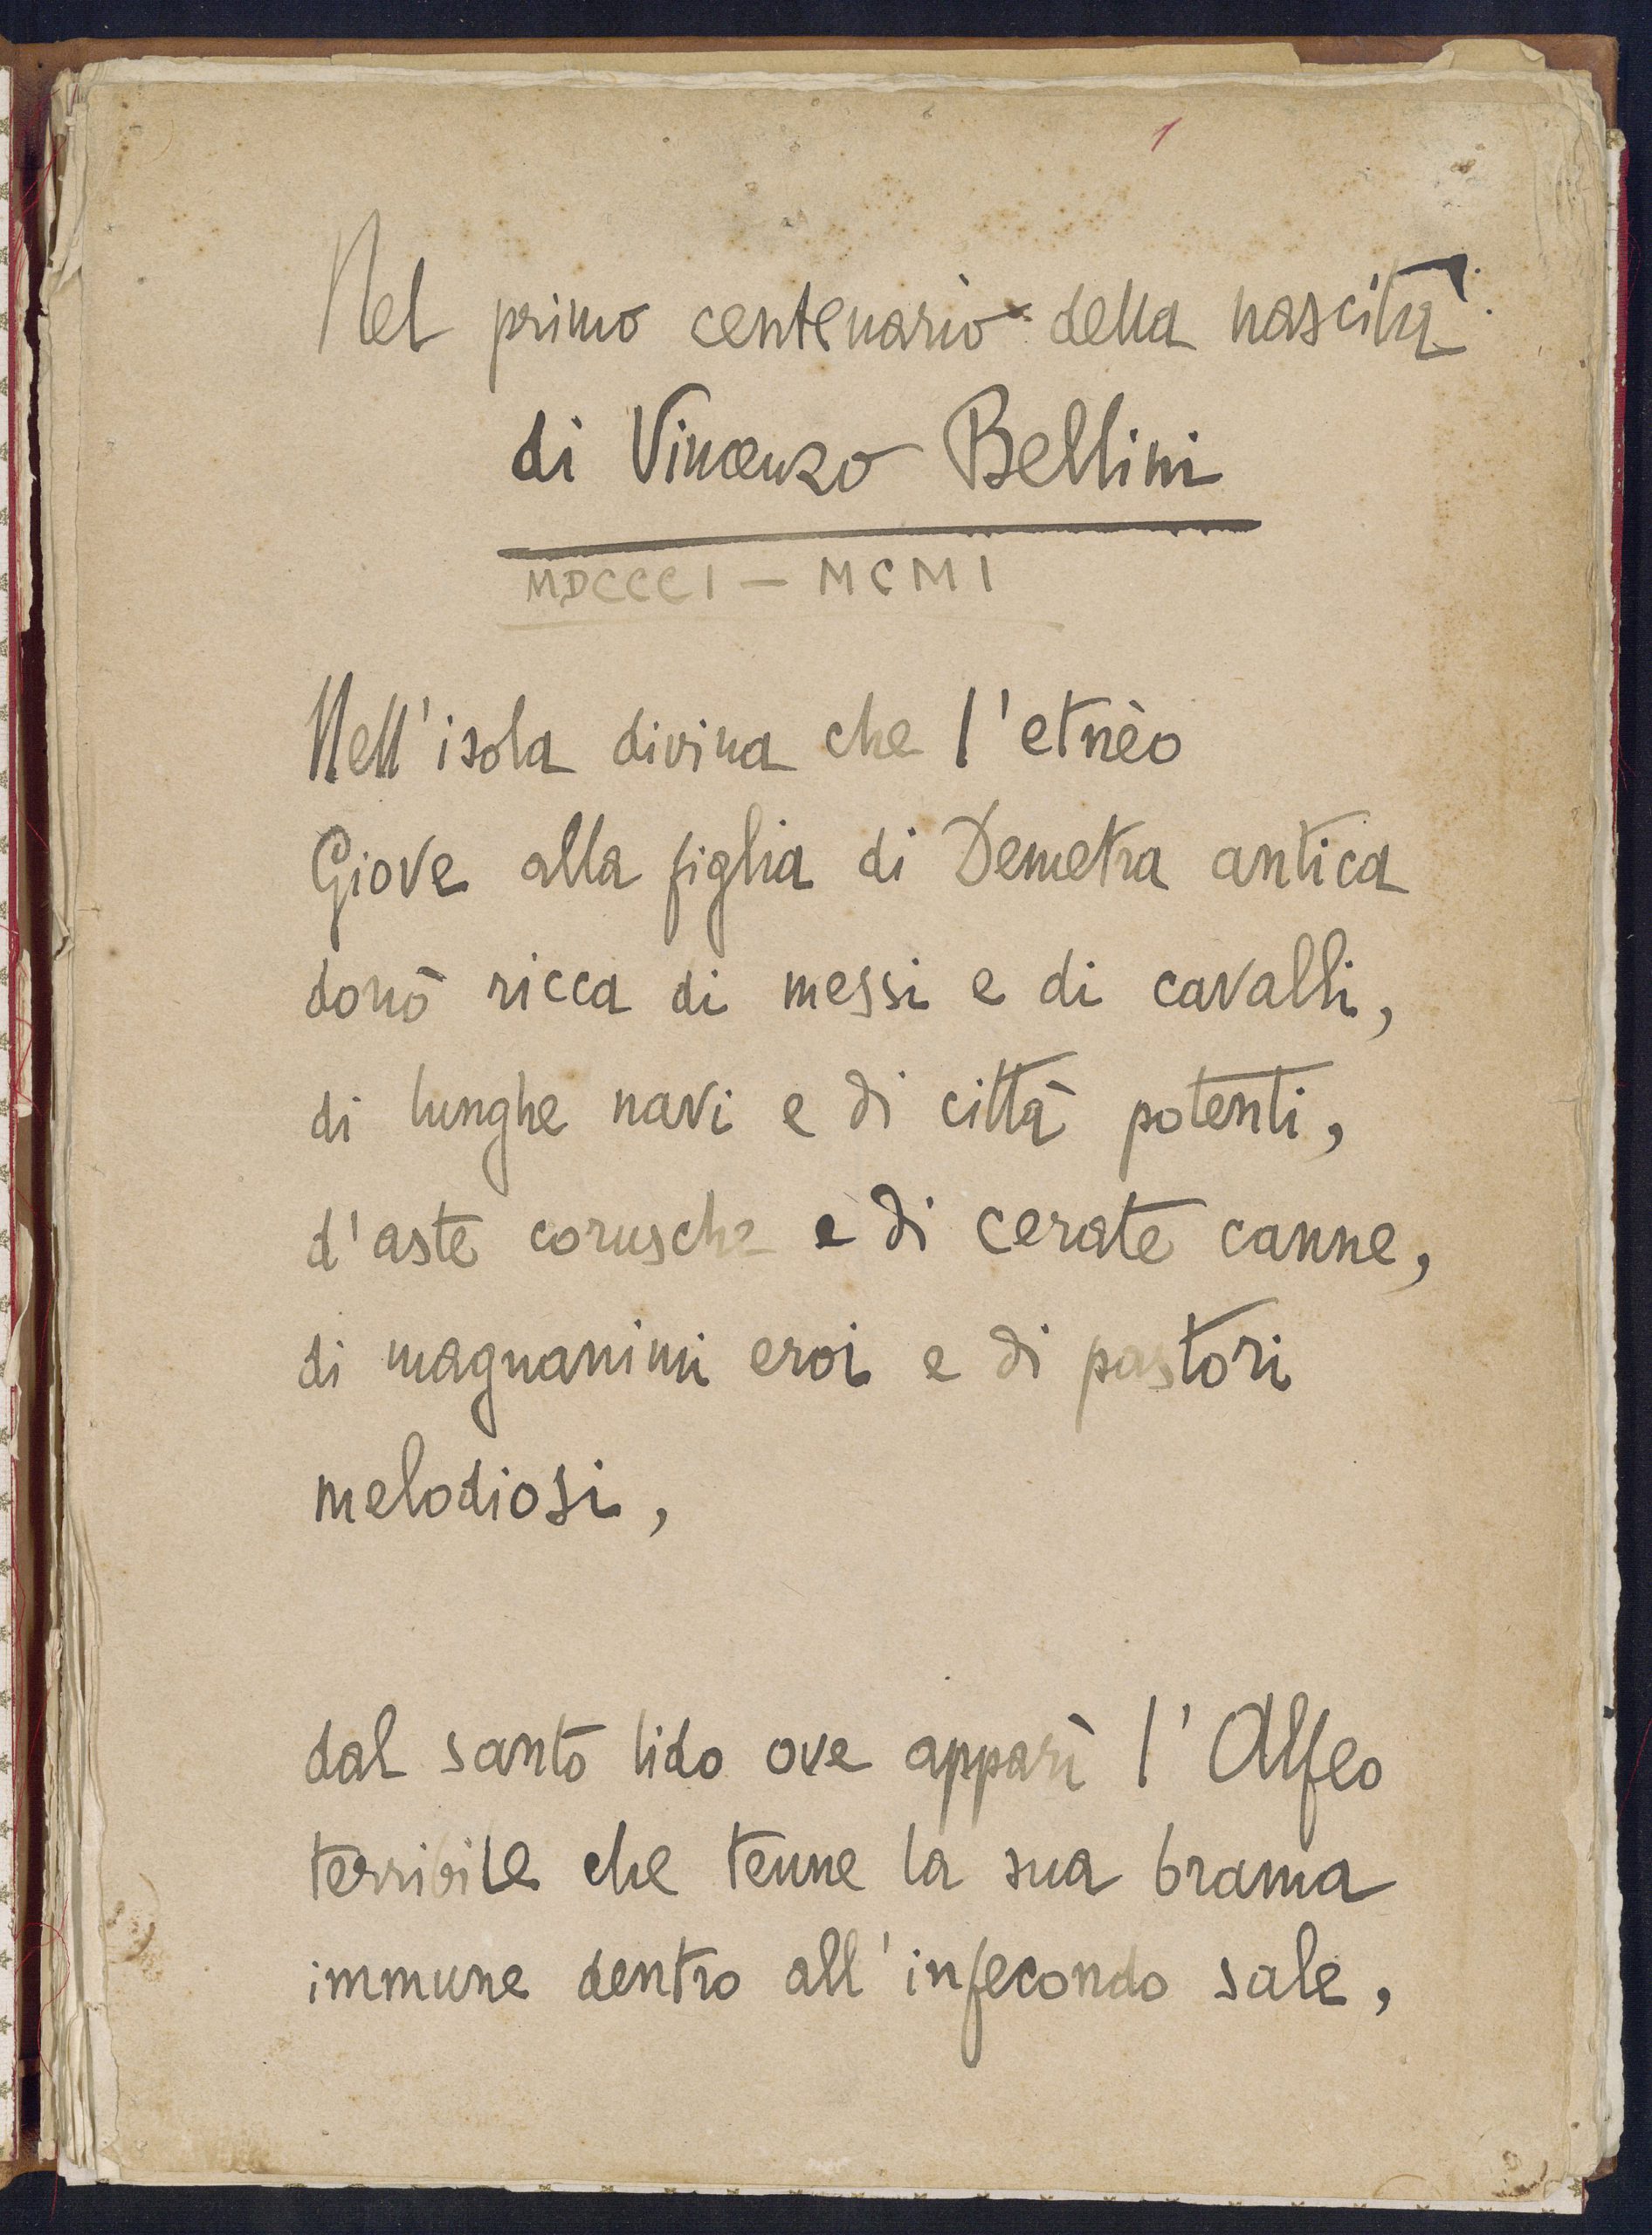 1
Nel primo centenario della nascita
di Vincenzo Bellini
MDCCCI — MCMI
Nell'isola divina che l'etnèo
Giove alla figlia di Demetra antica
donò ricca di messi e di cavalli,
di lunghe navi e di città potenti,
d'aste corusche e di cerate canne,
di magnanimi eroi e di pastori
melodiosi,
dal santo lido ove apparì l'Alfeo
terribile che tenne la sua brama
immune dentro all'infecondo sale,